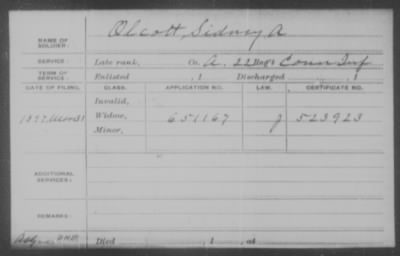 NAME OF SOLDIER: Olcott, Sidney A
SERVICE: Late rank, Co. A, 22 Reg't Conn Inf
TERM OF SERVICE: Enlisted , 1 Discharged , 1
DATE OF FILING. CLASS. APPLICATION NO. LAW. CERTIFICATE NO.
Invalid,
1897 Mar 31 Widow, 651167 J 523923
Minor,
ADDITIONAL SERVICES:
REMARKS:
Died , 1 , at